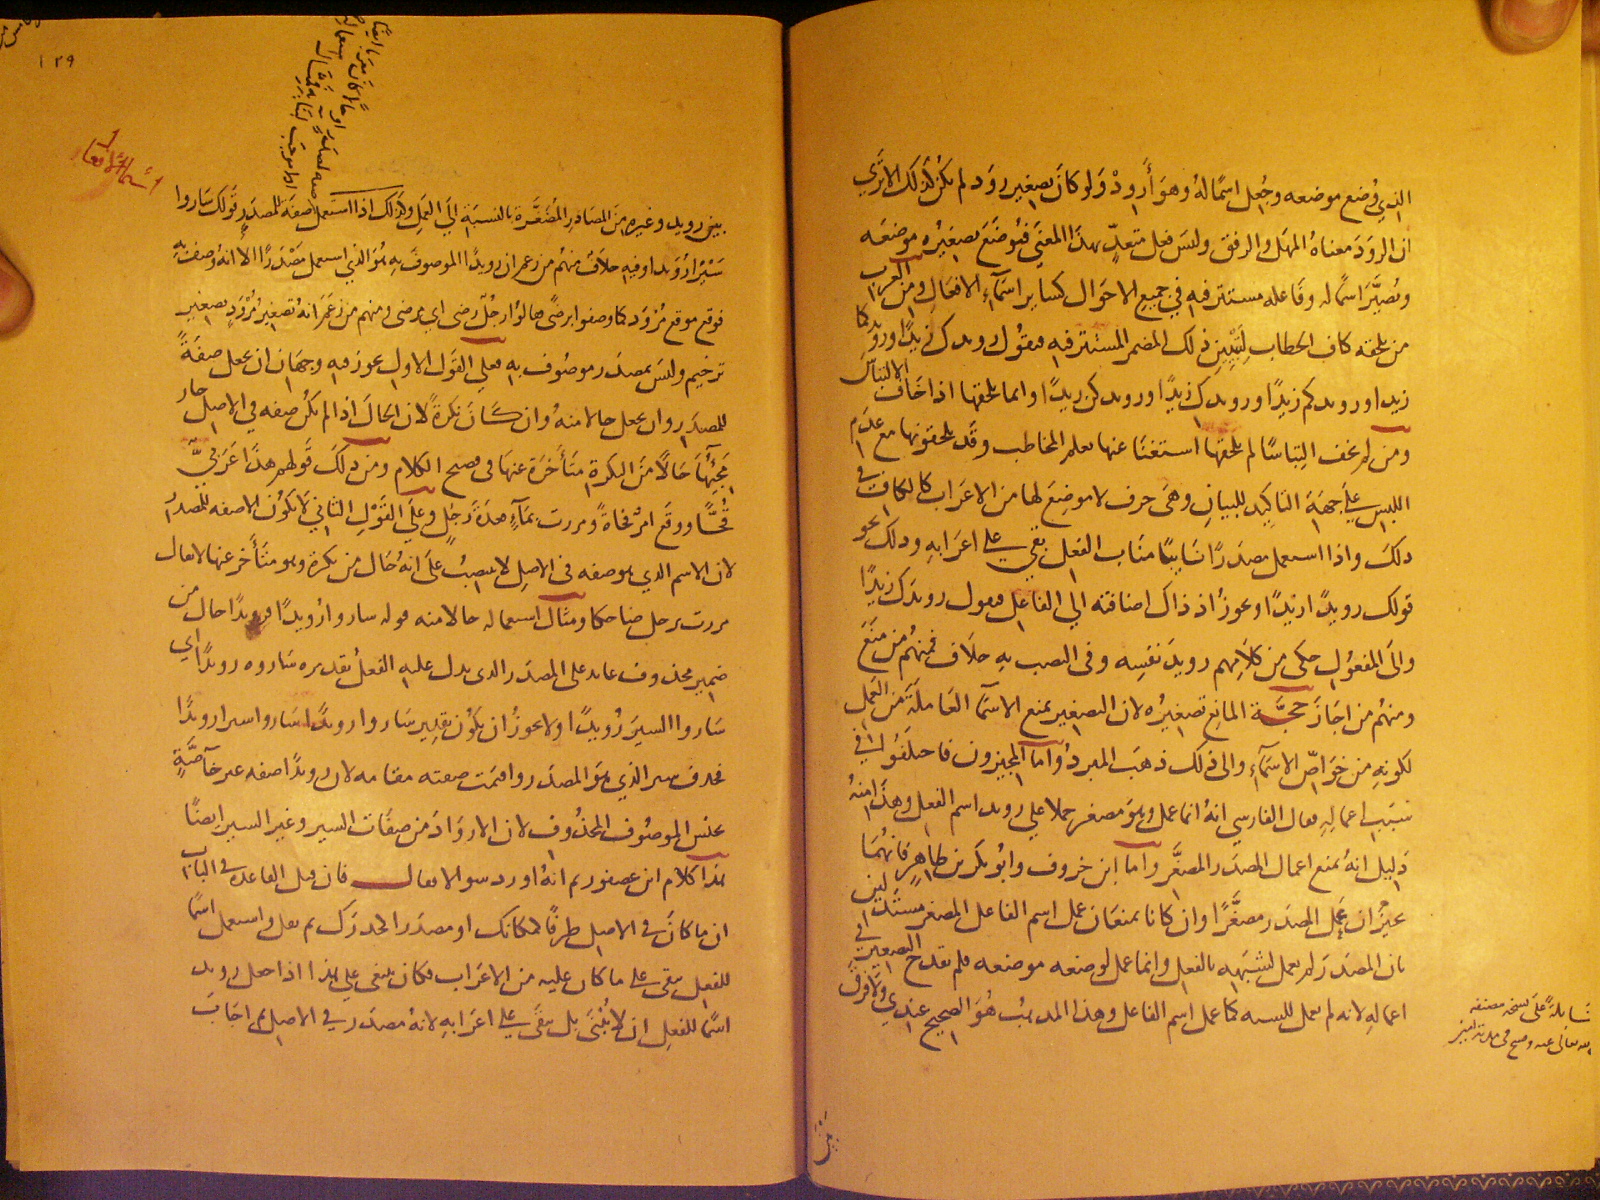 الذي وُضع موضعه وجُعل اسمًا له وهو أَرْوِدْ ولو كان تصغير رود لم يكن كذلك الا ترى
ان الرود معناه المهل والرفق وليس فعل متعدٍّ بهذا المعنى فيُوضعَ تصغيرُه موضعَه
ويُصيَّرَ اسمًا له وفاعله مستتر فيه في جميع الاحوال كساير اسمآء الافعال ومن العرب
من يلحقه كاف الخطاب لتبيين ذلك المضمر المستتر فيه فيقول رويدك زيدًا ورويدكما
زيدا ورويدكم زيدًا ورويدكِ زيدًا ورويدكن زيدًا وانما يلحقها اذا خاف الالتباس
ومن لم يخف التباسًا لم يلحقها استغناءً عنها بعلم المخاطب وقد يلحقونها مع عدم
اللبس على جهة التاكيد للبيان وهي حرف لا موضع لها من الاعراب كالكاف في
ذلك واذا استعمل مصدرًا نايبًا مناب الفعل بقي على اعرابه وذلك نحو
قولك رويدًا زيدًا ويجوز اذ ذاك اضافته الى الفاعل فيقول رويدك زيدًا
والى المفعول حكى من كلامهم رويد نفسِه وفي النصب به خلاف فمنهم من منع
ومنهم من اجاز حجة المانع تصغيره لان التصغير يمنع الاسمآ العاملة من العمل
لكونه من خواصّ الاسمآء والى ذلك ذهب المبرد واما المجيزون فاختلفوا في
سبب اعماله فقال الفارسي انه انما عمل وهو مصغر حملا على رويد اسم الفعل وهذا منه
دليل انه يمنع اعمال المصدر المصغَّر واما ابن خروف وابو بكر بن طاهر فانهما
يجيزان عمل المصدر مصغَّرًا وان كانا يمنعان عمل اسم الفاعل المصغر مستدلين
بان المصدر لم يعمل لشبهه بالفعل وانما عمل لوضعه موضعه فلم يقدح التصغير في
اعماله لانه لم يعمل للشبه كما عمل اسم الفاعل وهذا المذهب هو الصحيح عندي ولا فرق
بين
١٢٩
اسماء الافعال
بين رويد وغيره من المصادر المصغَّرة بالنسبة الى العمل وكذلك اذا استعمل صفة للمصدر قولك ساروا
سَيْرًا رُوَيدا وفيه خلاف منهم من زعم ان رويدًا الموصوف به هو الذي استعمل مصدرًا الا انه وصف به
فوقع موقع مُرْوِد كما وصفوا برضًى فقالوا رجلٌ رضى اي مرضى ومنهم من زعم انه تصغير مُرْوِدٍ تصغير
ترخيم وليس بمصدر موصوف به فعلى القول الاول يجوز فيه وجهان ان يجعل صفةً
للمصدر وان يجعل حالا منه وان كان نكرةً لان الحال اذا لم يكن صفة في الاصل جاز
مجيئها حالًا من النكرة متأخرة عنها في فصيح الكلام ومن ذلك قولهم هذا عَرَبيٌّ
قُحًّا ووقع امرٌ فجاةً ومررت بمآءٍ قعدةَ رجلٍ وعلى القول الثاني لا يكون الا صفة للمصدر
لان الاسم الذي هو صفة في الاصل لا ينتصب على انه حال من نكرة وهو متأخر عنها لا يقال
مررت برجل ضاحكا ومثال استعماله حالا منه قوله ساروا رُويدًا فرويدًا حال من
ضمير محذوف عايد على المصدر الذي يدل عليه الفعل تقديره ساروه رويدًا اي
ساروا السير رُويدًا ولا يجوز ان يكون تقدير ساروا رويدًا ساروا سيرا رويدًا
فحذف سيرا الذي هو المصدر واقيمت صفته مقامه لان رويدًا صفة غير خاصَّةٍ
بجنس الموصوف المحذوف لان الارواد من صفات السير وغير السير ايضًا
هذا كلام ابن عصفور ثم انه اورد سؤالا فقال فان قيل القاعدة في الباب
ان ما كان في الاصل ظرفًا كمكانك او مصدرا كحذرك ثم نقل واستعمل اسمًا
للفعل بقي على ما كان عليه من الاعراب فكان ينبغي على هذا اذا جعل رويد
اسمًا للفعل ان لا يُبْنَى بل يبقى على اعرابه لانه مصدر في الاصل ثم اجاب